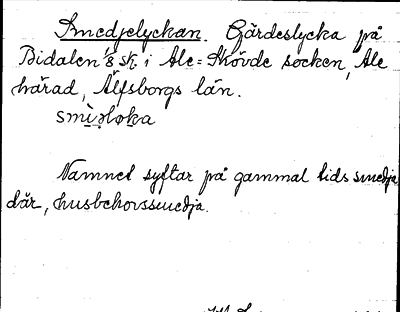 Smedjelyckan. Gärdeslycka på
Bidalen 1/8 sk. i Ale-Skövde socken, Ale
härad, Älfsborgs län.
Namnet syftar på gammal tids smedja
där, husbehovssmedja.